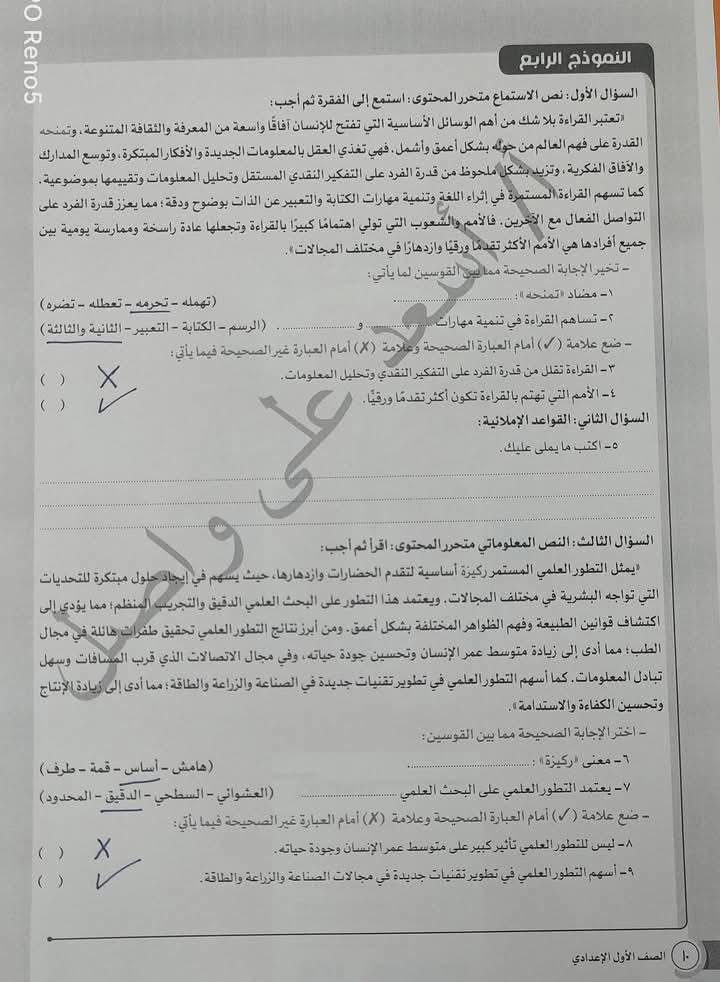 PO Reno5
النموذج الرابع
السؤال الأول: نص الاستماع متحرر المحتوى: استمع إلى الفقرة ثم أجب:
«تعتبر القراءة بلا شك من أهم الوسائل الأساسية التي تفتح للإنسان آفاقًا واسعة من المعرفة والثقافة المتنوعة، وتمنحه
القدرة على فهم العالم من حوله بشكل أعمق وأشمل. فهي تغذي العقل بالمعلومات الجديدة والأفكار المبتكرة، وتوسع المدارك
والآفاق الفكرية، وتزيد بشكل ملحوظ من قدرة الفرد على التفكير النقدي المستقل وتحليل المعلومات وتقييمها بموضوعية.
كما تسهم القراءة المستمرة في إثراء اللغة وتنمية مهارات الكتابة والتعبير عن الذات بوضوح ودقة؛ مما يعزز قدرة الفرد على
التواصل الفعال مع الآخرين. فالأمم والشعوب التي تولي اهتمامًا كبيرًا بالقراءة وتجعلها عادة راسخة وممارسة يومية بين
جميع أفرادها هي الأمم الأكثر تقدمًا ورقيًا وازدهارًا في مختلف المجالات».
- تخير الإجابة الصحيحة مما بين القوسين لما يأتي:
١- مضاد «تمنحه»: .......................... (تهمله - تحرمه - تعطله - تضره)
٢- تساهم القراءة في تنمية مهارات .................. و .................. . (الرسم - الكتابة - التعبير - الثانية والثالثة)
- ضع علامة (✓) أمام العبارة الصحيحة وعلامة (✗) أمام العبارة غير الصحيحة فيما يأتي:
٣- القراءة تقلل من قدرة الفرد على التفكير النقدي وتحليل المعلومات. ✗ ( )
٤- الأمم التي تهتم بالقراءة تكون أكثر تقدمًا ورقيًا. ✓ ( )
السؤال الثاني: القواعد الإملائية:
٥- اكتب ما يملى عليك.
السؤال الثالث: النص المعلوماتي متحرر المحتوى: اقرأ ثم أجب:
«يمثل التطور العلمي المستمر ركيزة أساسية لتقدم الحضارات وازدهارها، حيث يسهم في إيجاد حلول مبتكرة للتحديات
التي تواجه البشرية في مختلف المجالات. ويعتمد هذا التطور على البحث العلمي الدقيق والتجريب المنظم؛ مما يؤدي إلى
اكتشاف قوانين الطبيعة وفهم الظواهر المختلفة بشكل أعمق. ومن أبرز نتائج التطور العلمي تحقيق طفرات هائلة في مجال
الطب؛ مما أدى إلى زيادة متوسط عمر الإنسان وتحسين جودة حياته، وفي مجال الاتصالات الذي قرب المسافات وسهل
تبادل المعلومات. كما أسهم التطور العلمي في تطوير تقنيات جديدة في الصناعة والزراعة والطاقة؛ مما أدى إلى زيادة الإنتاج
وتحسين الكفاءة والاستدامة».
- اختر الإجابة الصحيحة مما بين القوسين:
٦- معنى «ركيزة»: .......................... (هامش - أساس - قمة - طرف)
٧- يعتمد التطور العلمي على البحث العلمي .................. (العشوائي - السطحي - الدقيق - المحدود)
- ضع علامة (✓) أمام العبارة الصحيحة وعلامة (✗) أمام العبارة غير الصحيحة فيما يأتي:
٨- ليس للتطور العلمي تأثير كبير على متوسط عمر الإنسان وجودة حياته. ✗ ( )
٩- أسهم التطور العلمي في تطوير تقنيات جديدة في مجالات الصناعة والزراعة والطاقة. ✓ ( )
أ/ أسعد على واصل
١٠ الصف الأول الإعدادي